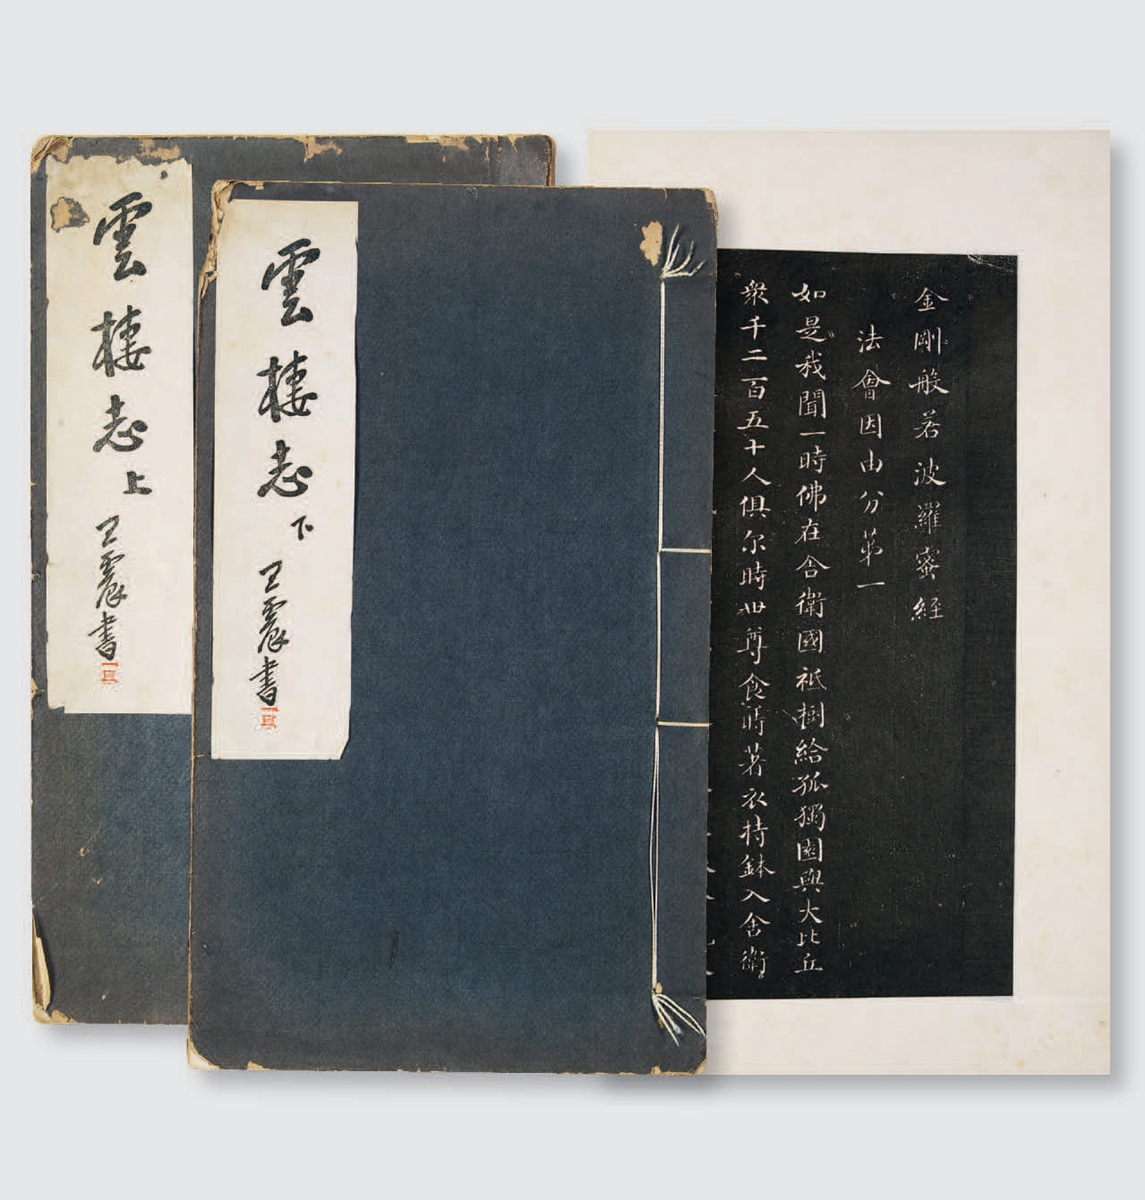 雲棲志上
王震書
雲棲志下
王震書
金剛般若波羅蜜經
法會因由分第一
如是我聞一時佛在舍衛國祇樹給孤獨園與大比丘
衆千二百五十人俱尔時世尊食時著衣持鉢入舍衛